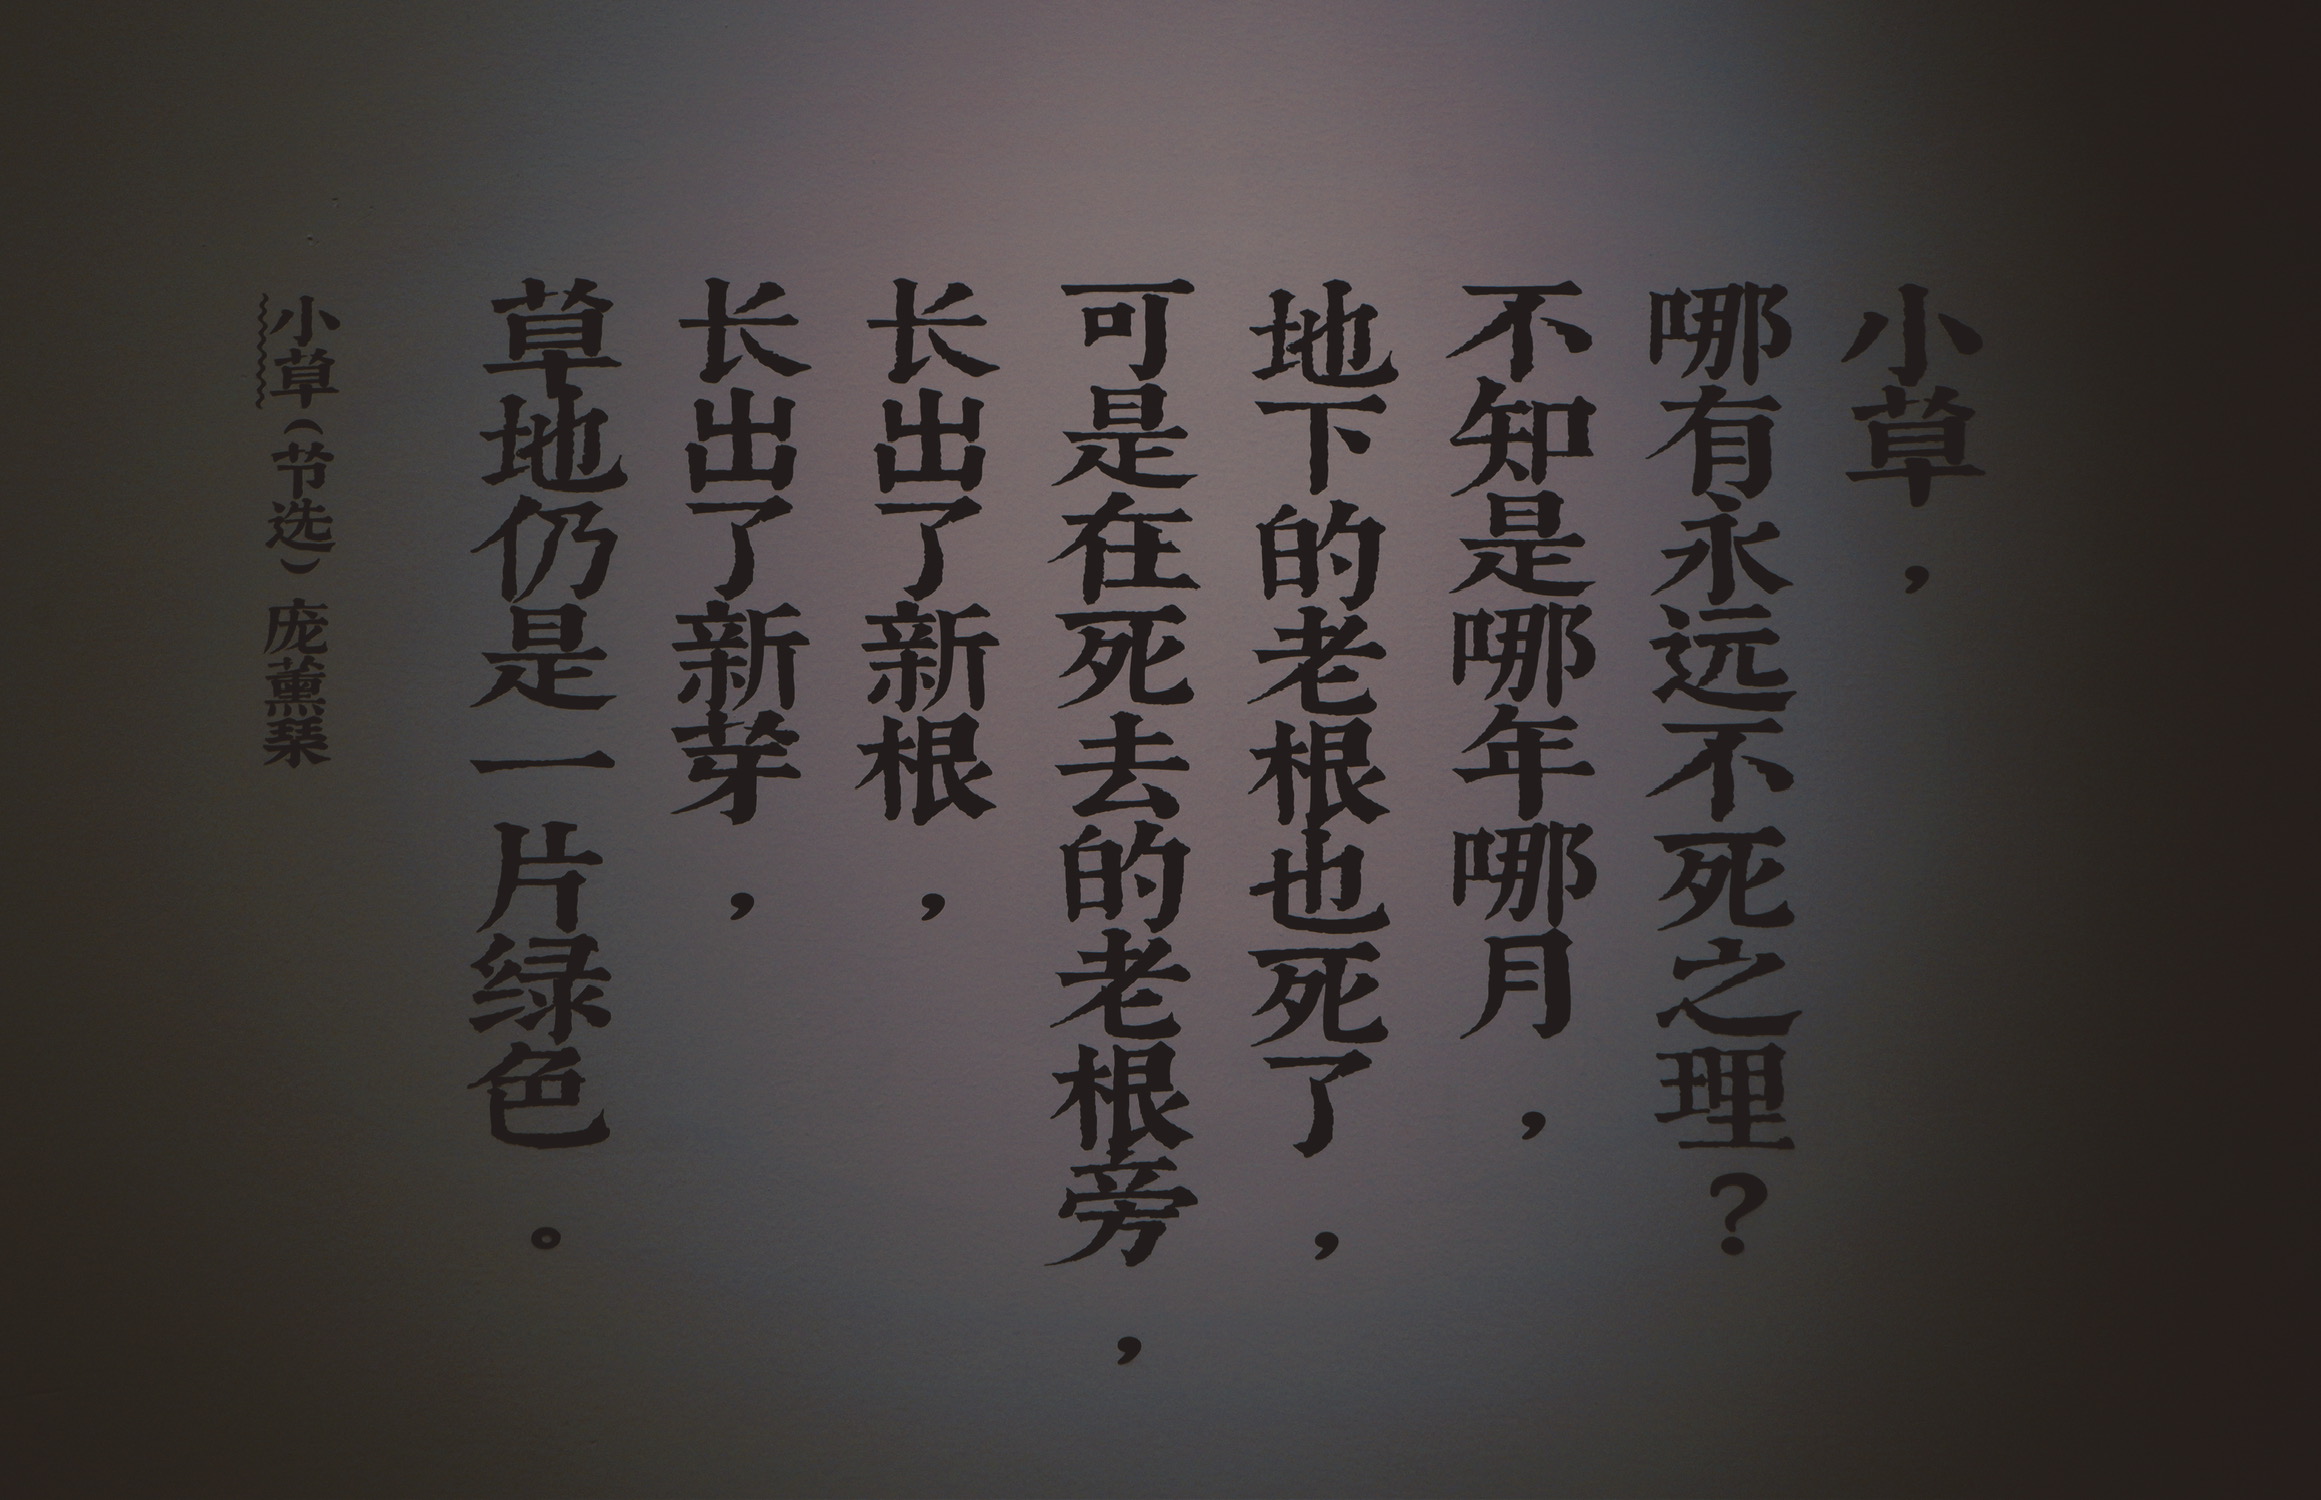 小草，
哪有永远不死之理？
不知是哪年哪月，
地下的老根也死了，
可是在死去的老根旁，
长出了新根，
长出了新芽，
草地仍是一片绿色。
小草（节选） 庞薰琹